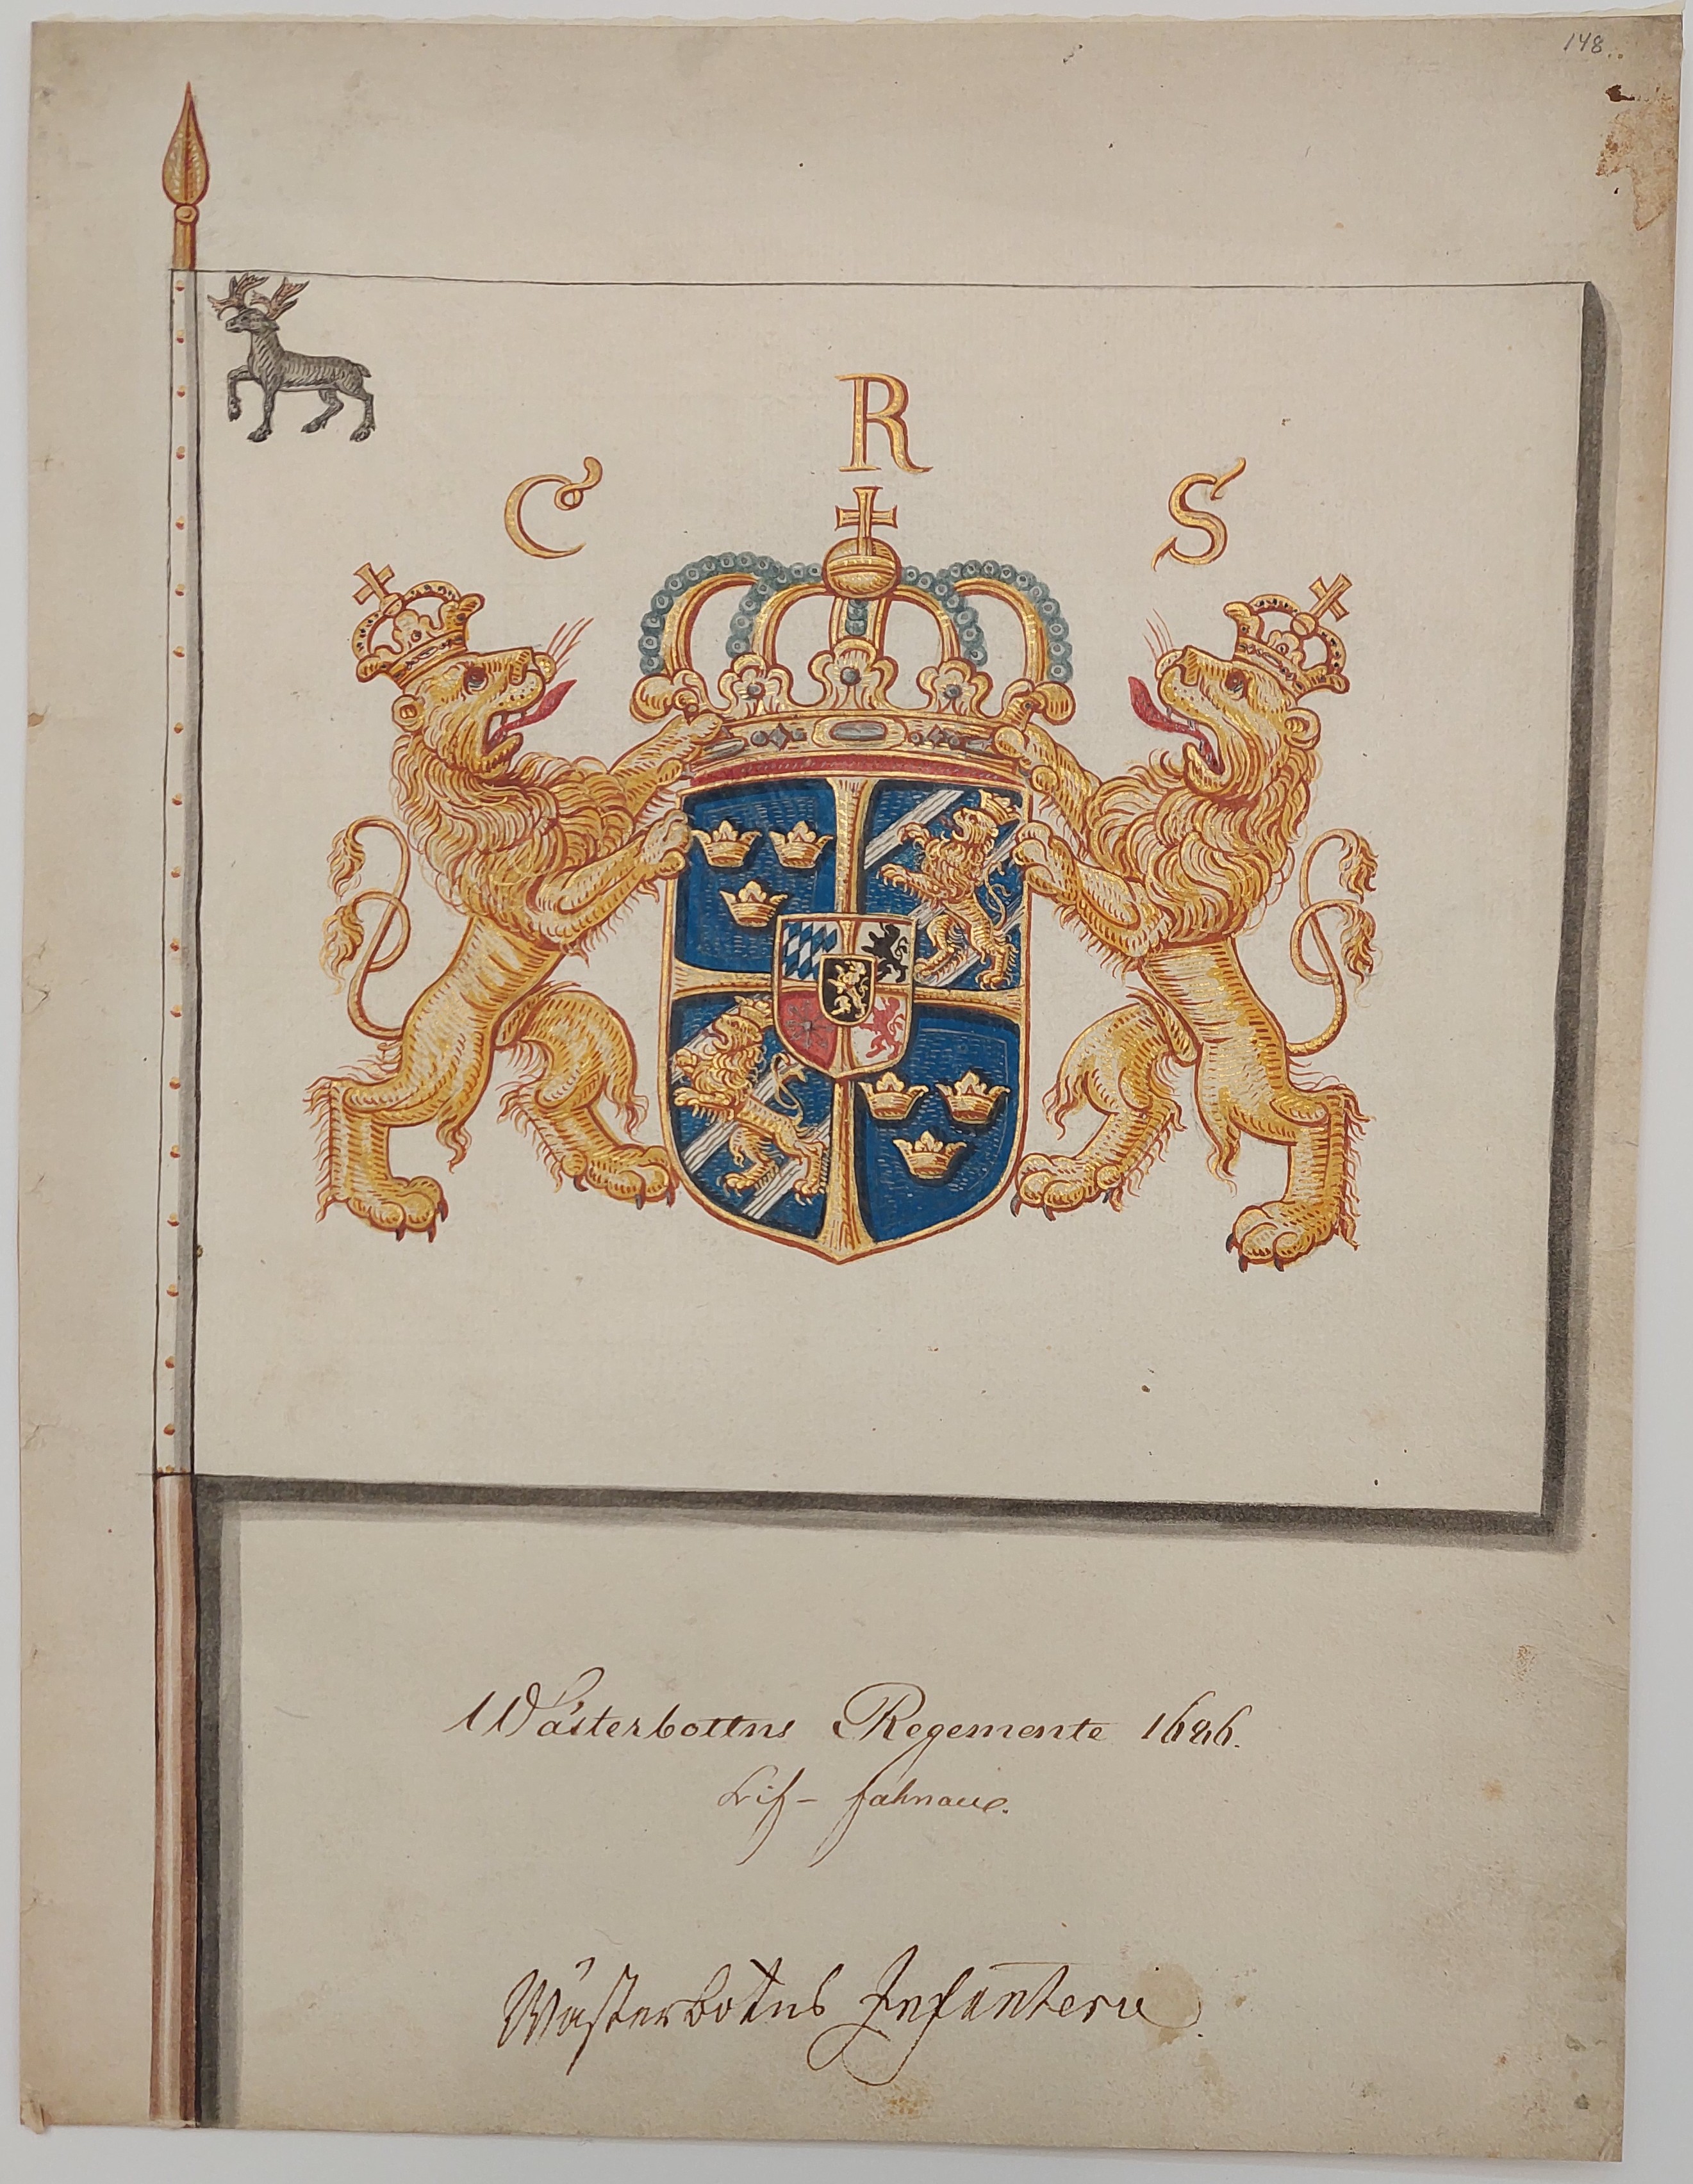 148.
C R S
Wästerbottns Regemente 1686.
Lif- fahnan.
Wästerbotns Infanterie